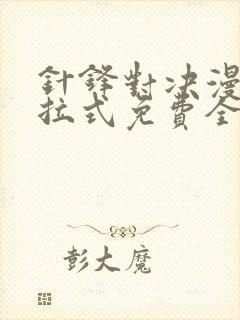 針鋒對決漫
拉式免費全
彭大魔